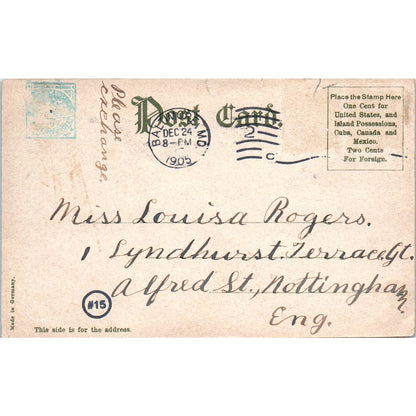 Please
exchange.
Post Card.
DEC 24
8-PM
1905
MD.
2
C
Place the Stamp Here
One Cent for
United States, and
Island Possessions,
Cuba, Canada and
Mexico.
Two Cents
For Foreign.
Miss Louisa Rogers.
1 Lyndhurst Terrace, Gt.
Alfred St., Nottingham.
Eng.
#15
Made in Germany.
This side is for the address.